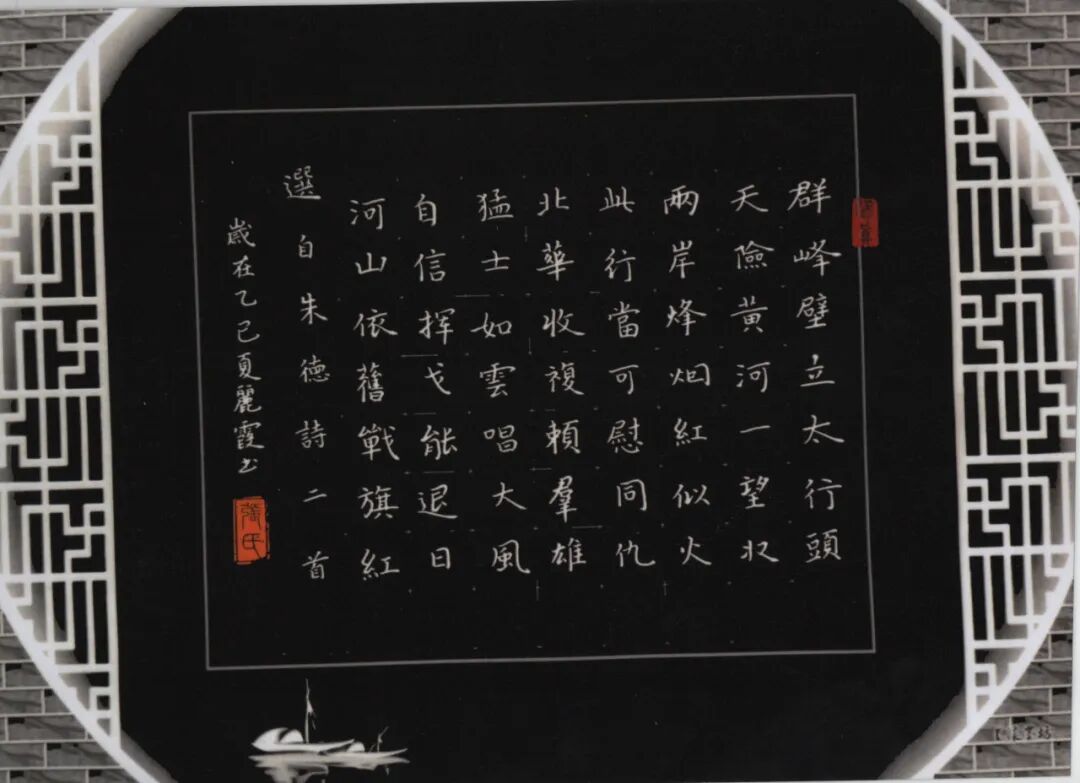 群峰壁立太行頭
天險黃河一望收
兩岸烽烟紅似火
此行當可慰同仇
北華收複賴羣雄
猛士如雲唱大風
自信揮戈能退日
河山依舊戰旗紅
選自朱德詩二首
歲在乙巳夏麗霞书
張氏